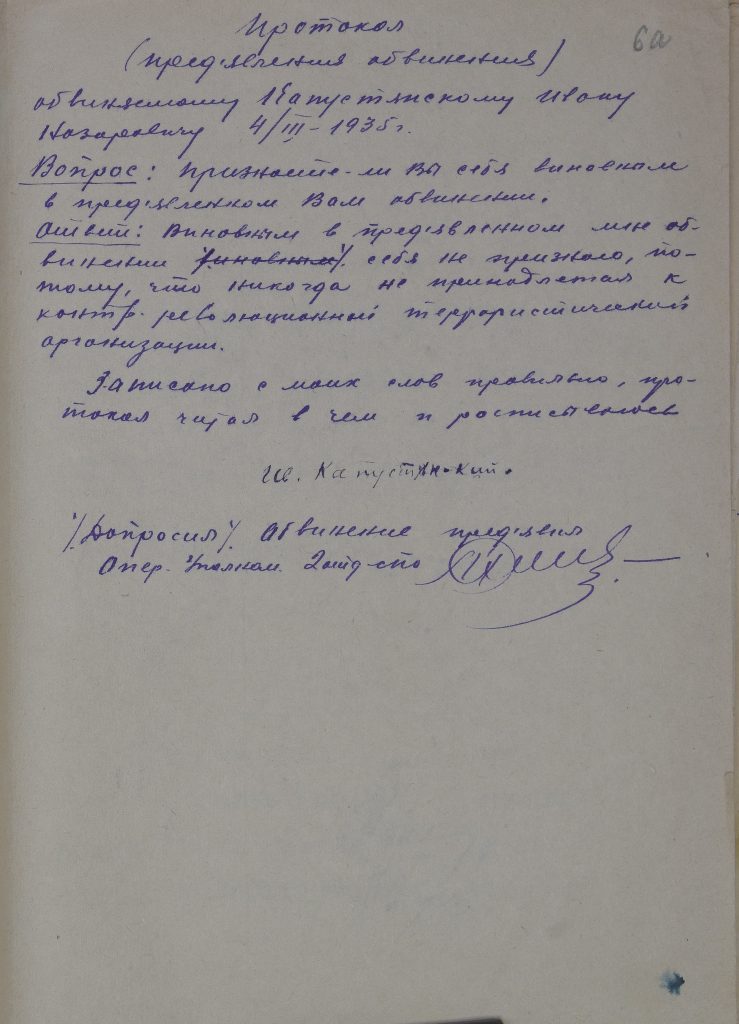 6а
Протокол
(пред'явления обвинения)
обвиняемому Капустянскому Ивану
Назаровичу 4/III-1935г.
Вопрос: Признаете-ли Вы себя виновным
в пред'явленном Вам обвинении.
Ответ: Виновным в пред'явленном мне об-
винении /виновным/ себя не признаю, по-
тому, что никогда не принадлежал к
контр-революционной террористической
организации.
Записано с моих слов правильно, про-
токол читал в чем и росписываюсь
Ив. Капустянский.
/Допросил/. Обвинение пред'явил
Опер. Уполном. 2 отд-спо